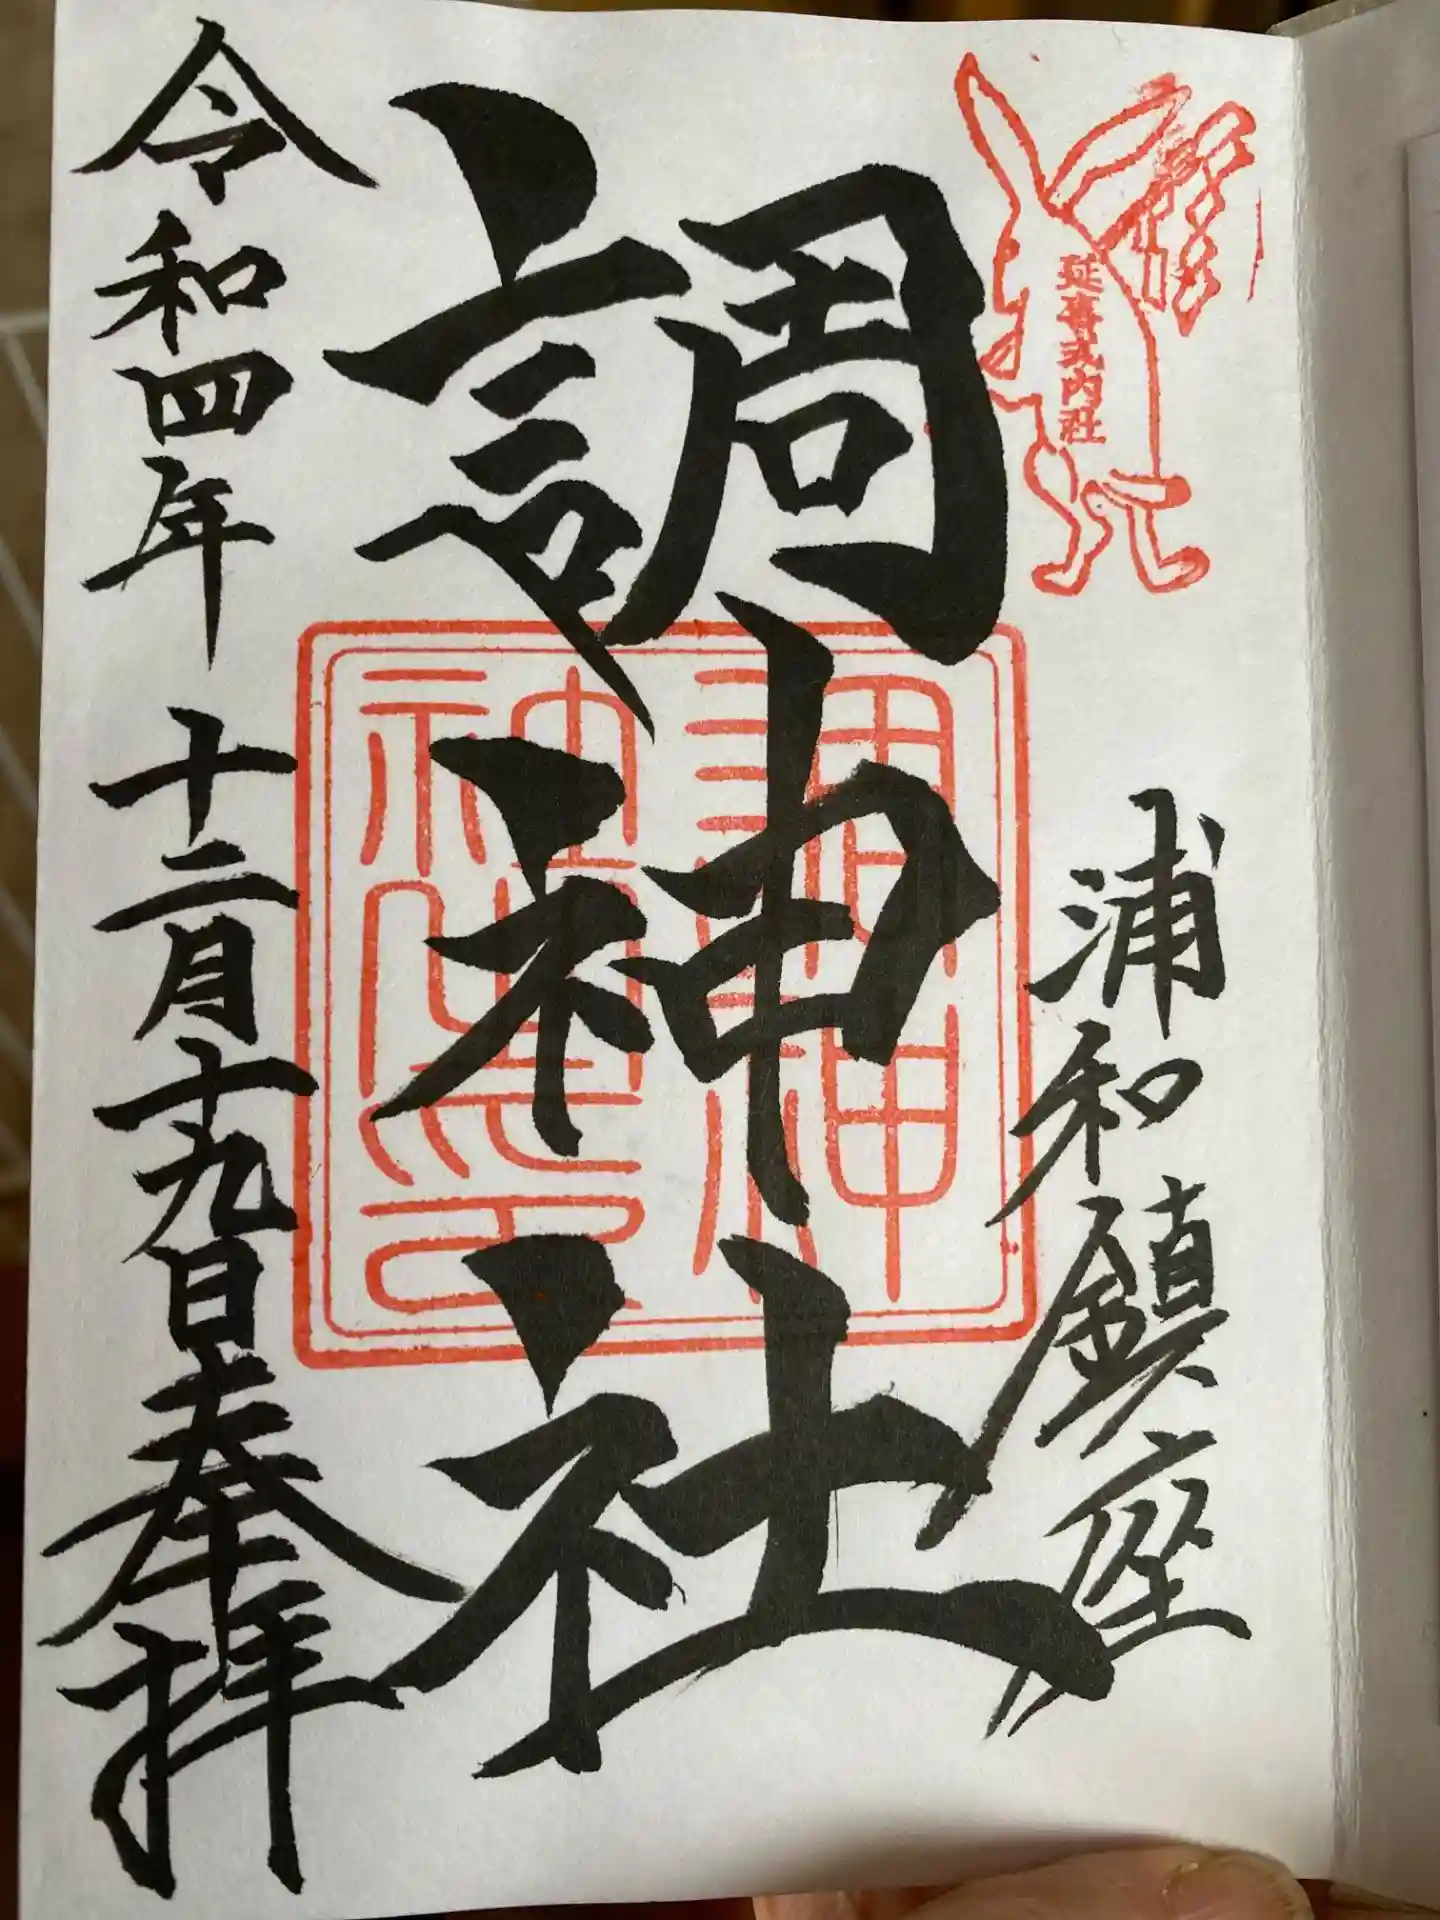 延喜式内社
浦和鎮座
調神社
調神社印
令和四年 十二月十九日奉拝